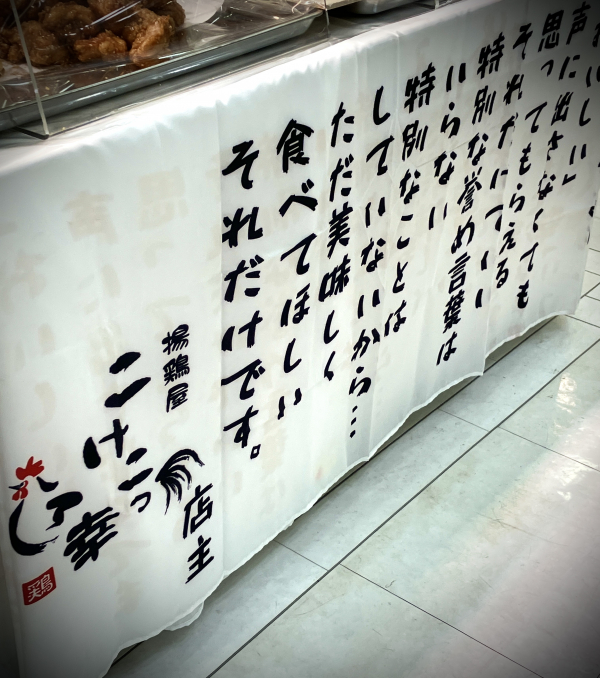 いしい」
声に出さなくても
思ってもらえる
それだけでいい
特別な誉め言葉は
いらない
特別なことは
していないから…
ただ美味しく
食べてほしい
それだけです。
揚鶏屋
こけこっこ幸
店主
鶏